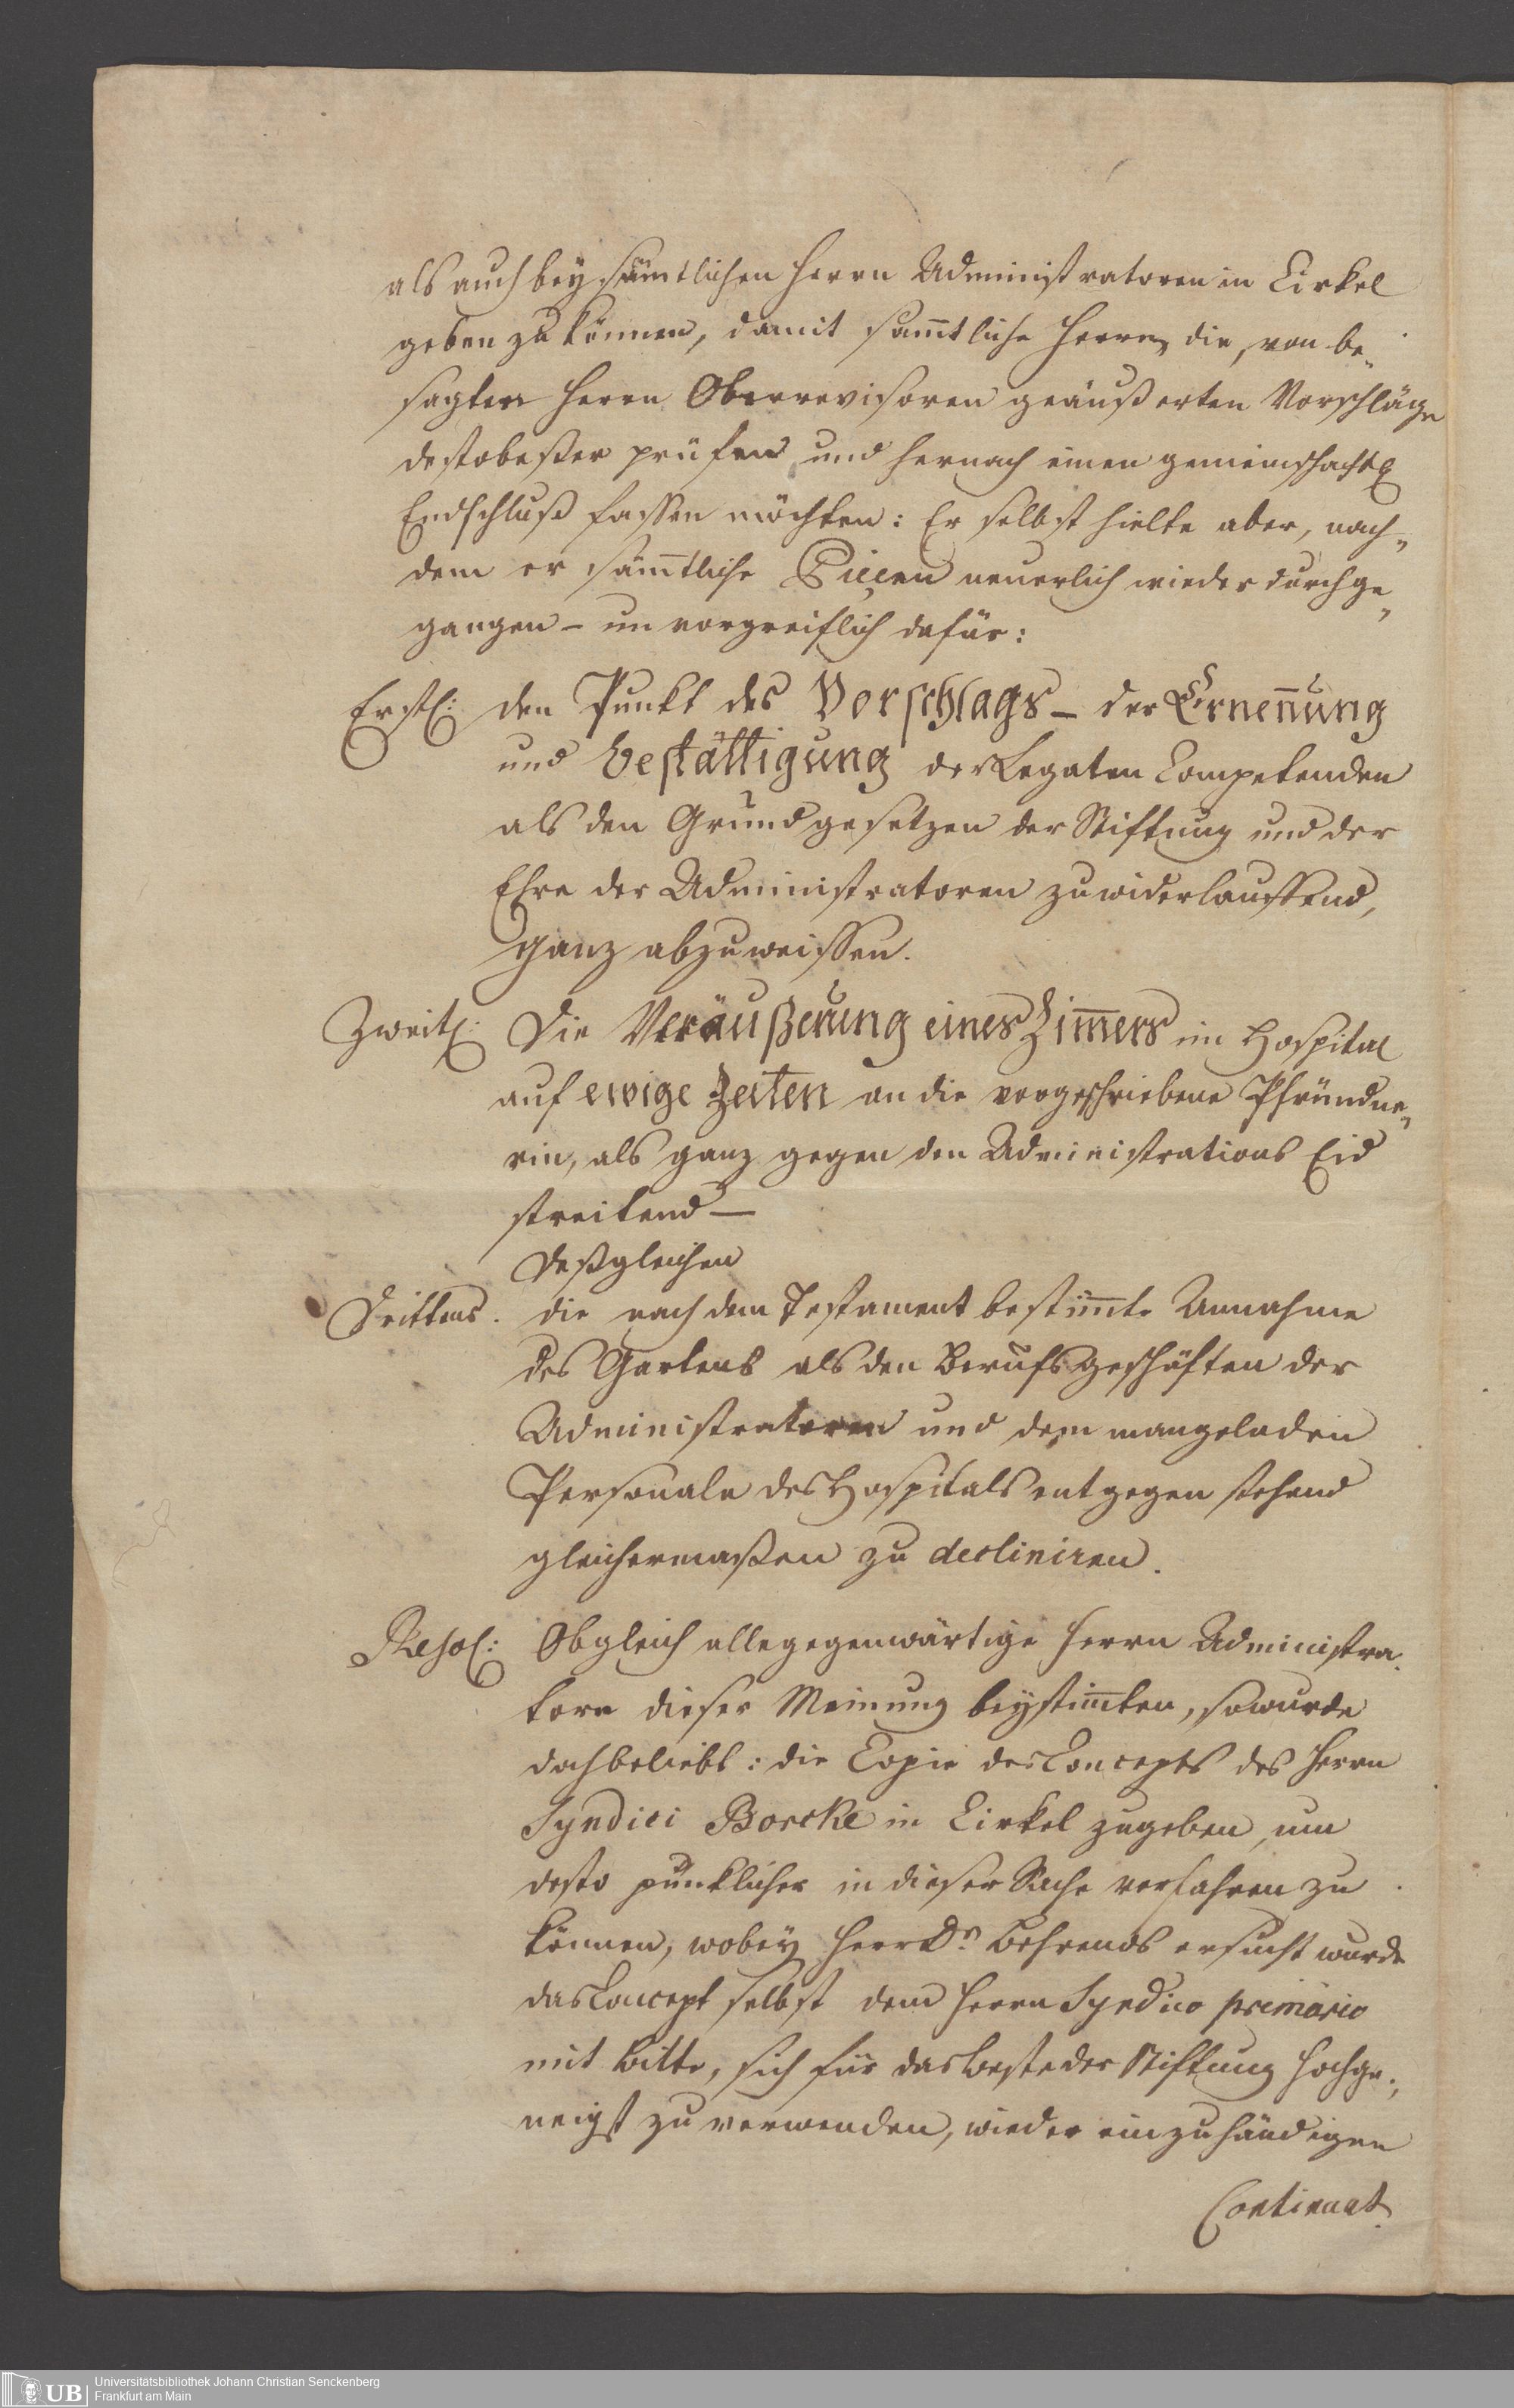 als auch bey sämtlichen Herrn Administratoren in Cirkel
geben zu können, damit sam̄tliche Herrn, die, von be„
sagten Herrn Oberrevisoren geäußerten Vorschläge
destobeßer prüfen und hernach einen gemeinschaftl:
Endschluß fassen möchten: Er selbst hielte aber, nach„
dem er säm̄tliche Piècen neuerlich wieder durchge„
gangen – unvorgreiflich dafür:
Erstl: den Punkt des Vorschlags – der Ernen̄ung
und Bestättigung der Legaten Competenden
als den Grundgesetzen der Stiftung und der
Ehre der Administratoren zuwiderlauffend,
ganz abzuweissen.
Zweitl: Die Veräußerung eines Zim̄ers im Hospital
auf ewige Zeiten an die vorgeschriebene Pfründne„
rin, als ganz gegen den Administrations Eid
streitend –
Deßgleichen
Drittens. die nach dem Testament bestim̄te Annahme
des Gartens als den Berufsgeschäften der
Administratoren und dem mangelnden
Personale des Hospitals entgegen stehend
gleichermaßen zu decliniren.
Resol: Obgleich alle gegenwärtige Herrn Administra„
torn dieser Meinung beystim̄ten, so wurde
doch beliebt: die Copie des Concepts des Herrn
Syndici Borcke in Cirkel zugeben, um
desto pünktlicher in dieser Sache verfahren zu
können, wobey Herr Dr. Behrends ersucht wurde
das Concept selbst dem Herrn Syndico primario
mit Bitte, sich für das Beste der Stiftung hochge„
neigst zu verwenden, wieder einzuhändigen
Continuat.
UB Universitätsbibliothek Johann Christian Senckenberg
Frankfurt am Main